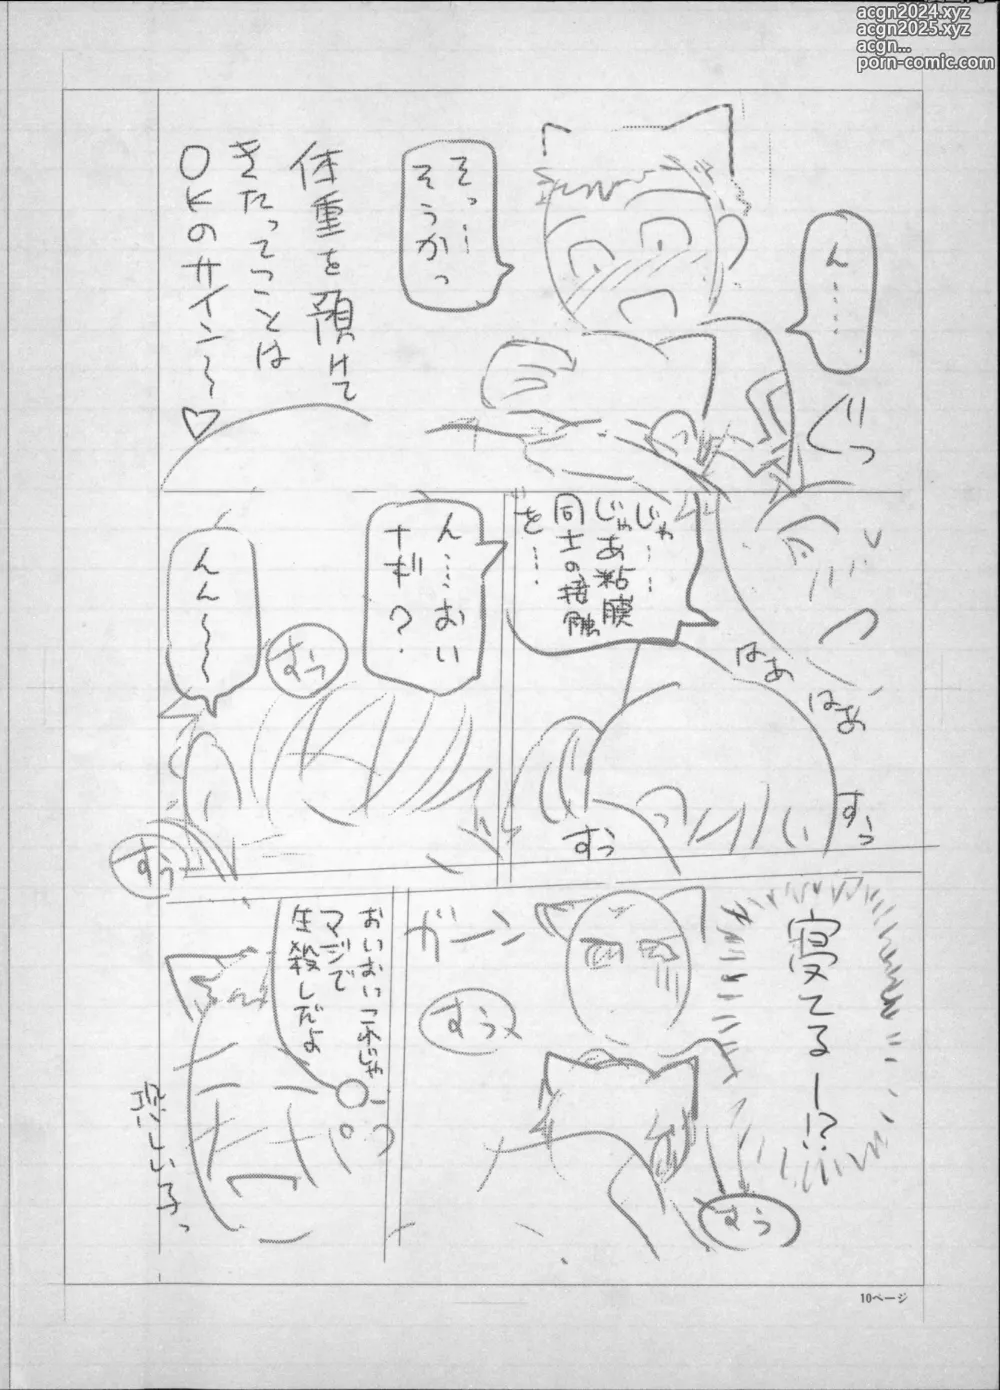 acgn2024.xyz
acgn2025.xyz
acgn...
porn-comic.com
ん……
ぐっ
そっ…
そうかっ
体重を預けて
きたってことは
OKのサイン〜♡
じゃ……
じゃあ粘膜
同士の接触
を…
はあ
はあ
すぅ
すぅ
ん…おい
ナギ?
すぅ
んん〜〜
すぅ
寝てるー!?
ガーン
すぅ
すぅ
おいおいこれじゃ
マジで
生殺しだよ
恐ろしい子っ
10ページ